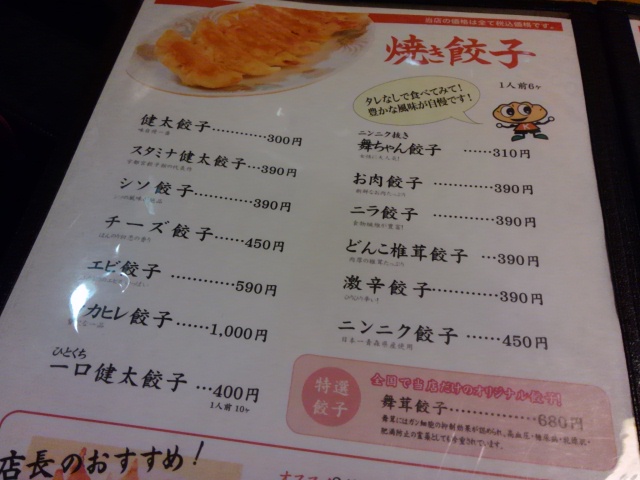 当店の価格は全て税込価格です。
焼き餃子
1人前6ヶ
タレなしで食べてみて!
豊かな風味が自慢です!
健太餃子…………300円
スタミナ健太餃子…390円
シソ餃子…………390円
チーズ餃子……450円
エビ餃子…………590円
カヒレ餃子……1,000円
ひとくち
一口健太餃子…400円
1人前10ヶ
ニンニク抜き
舞ちゃん餃子……310円
お肉餃子…………390円
ニラ餃子…………390円
どんこ椎茸餃子…390円
肉厚の椎茸たっぷり
激辛餃子…………390円
ニンニク餃子……450円
日本一青森県産使用
特選
餃子
全国で当店だけのオリジナル餃子!
舞茸餃子…………680円
店長のおすすめ!